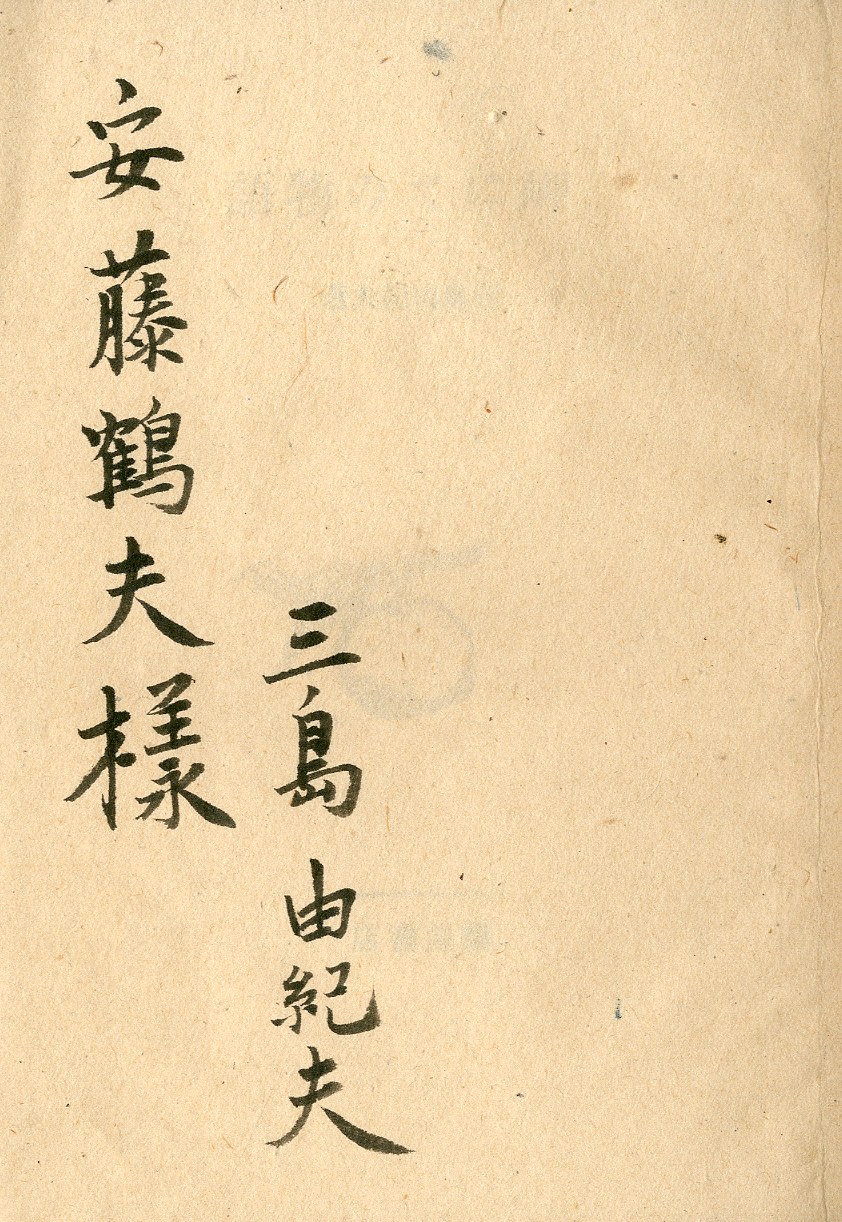 三島由紀夫
安藤鶴夫様